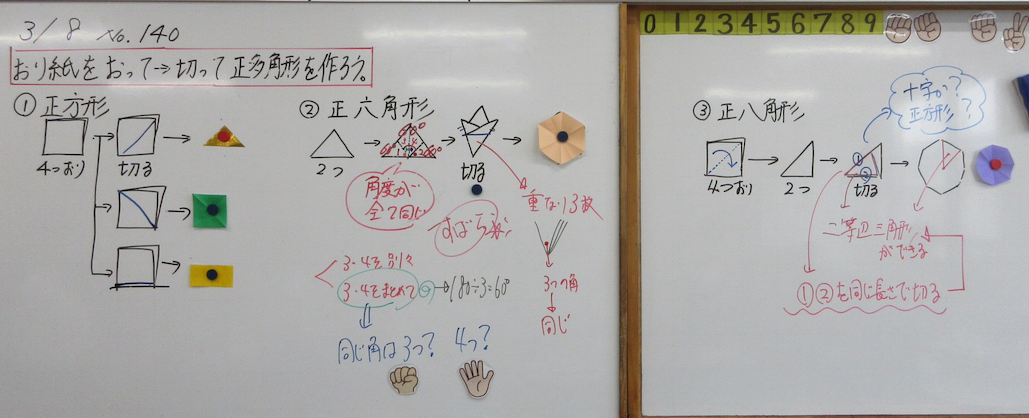 3/8 No.140
おり紙をおって→切って正多角形を作ろう。
① 正方形
4つおり
切る
② 正六角形
2つ
切る
角度が
全て同じ
すばらしい
重なり3枚
3つの角
同じ
3・4を別々
3・4をまとめて
→180÷3=60°
同じ角は3つ? 4つ?
0 1 2 3 4 5 6 7 8 9
③ 正八角形
十字か?
正方形?
4つおり
2つ
① ②
切る
二等辺三角形
ができる
①②を同じ長さで切る